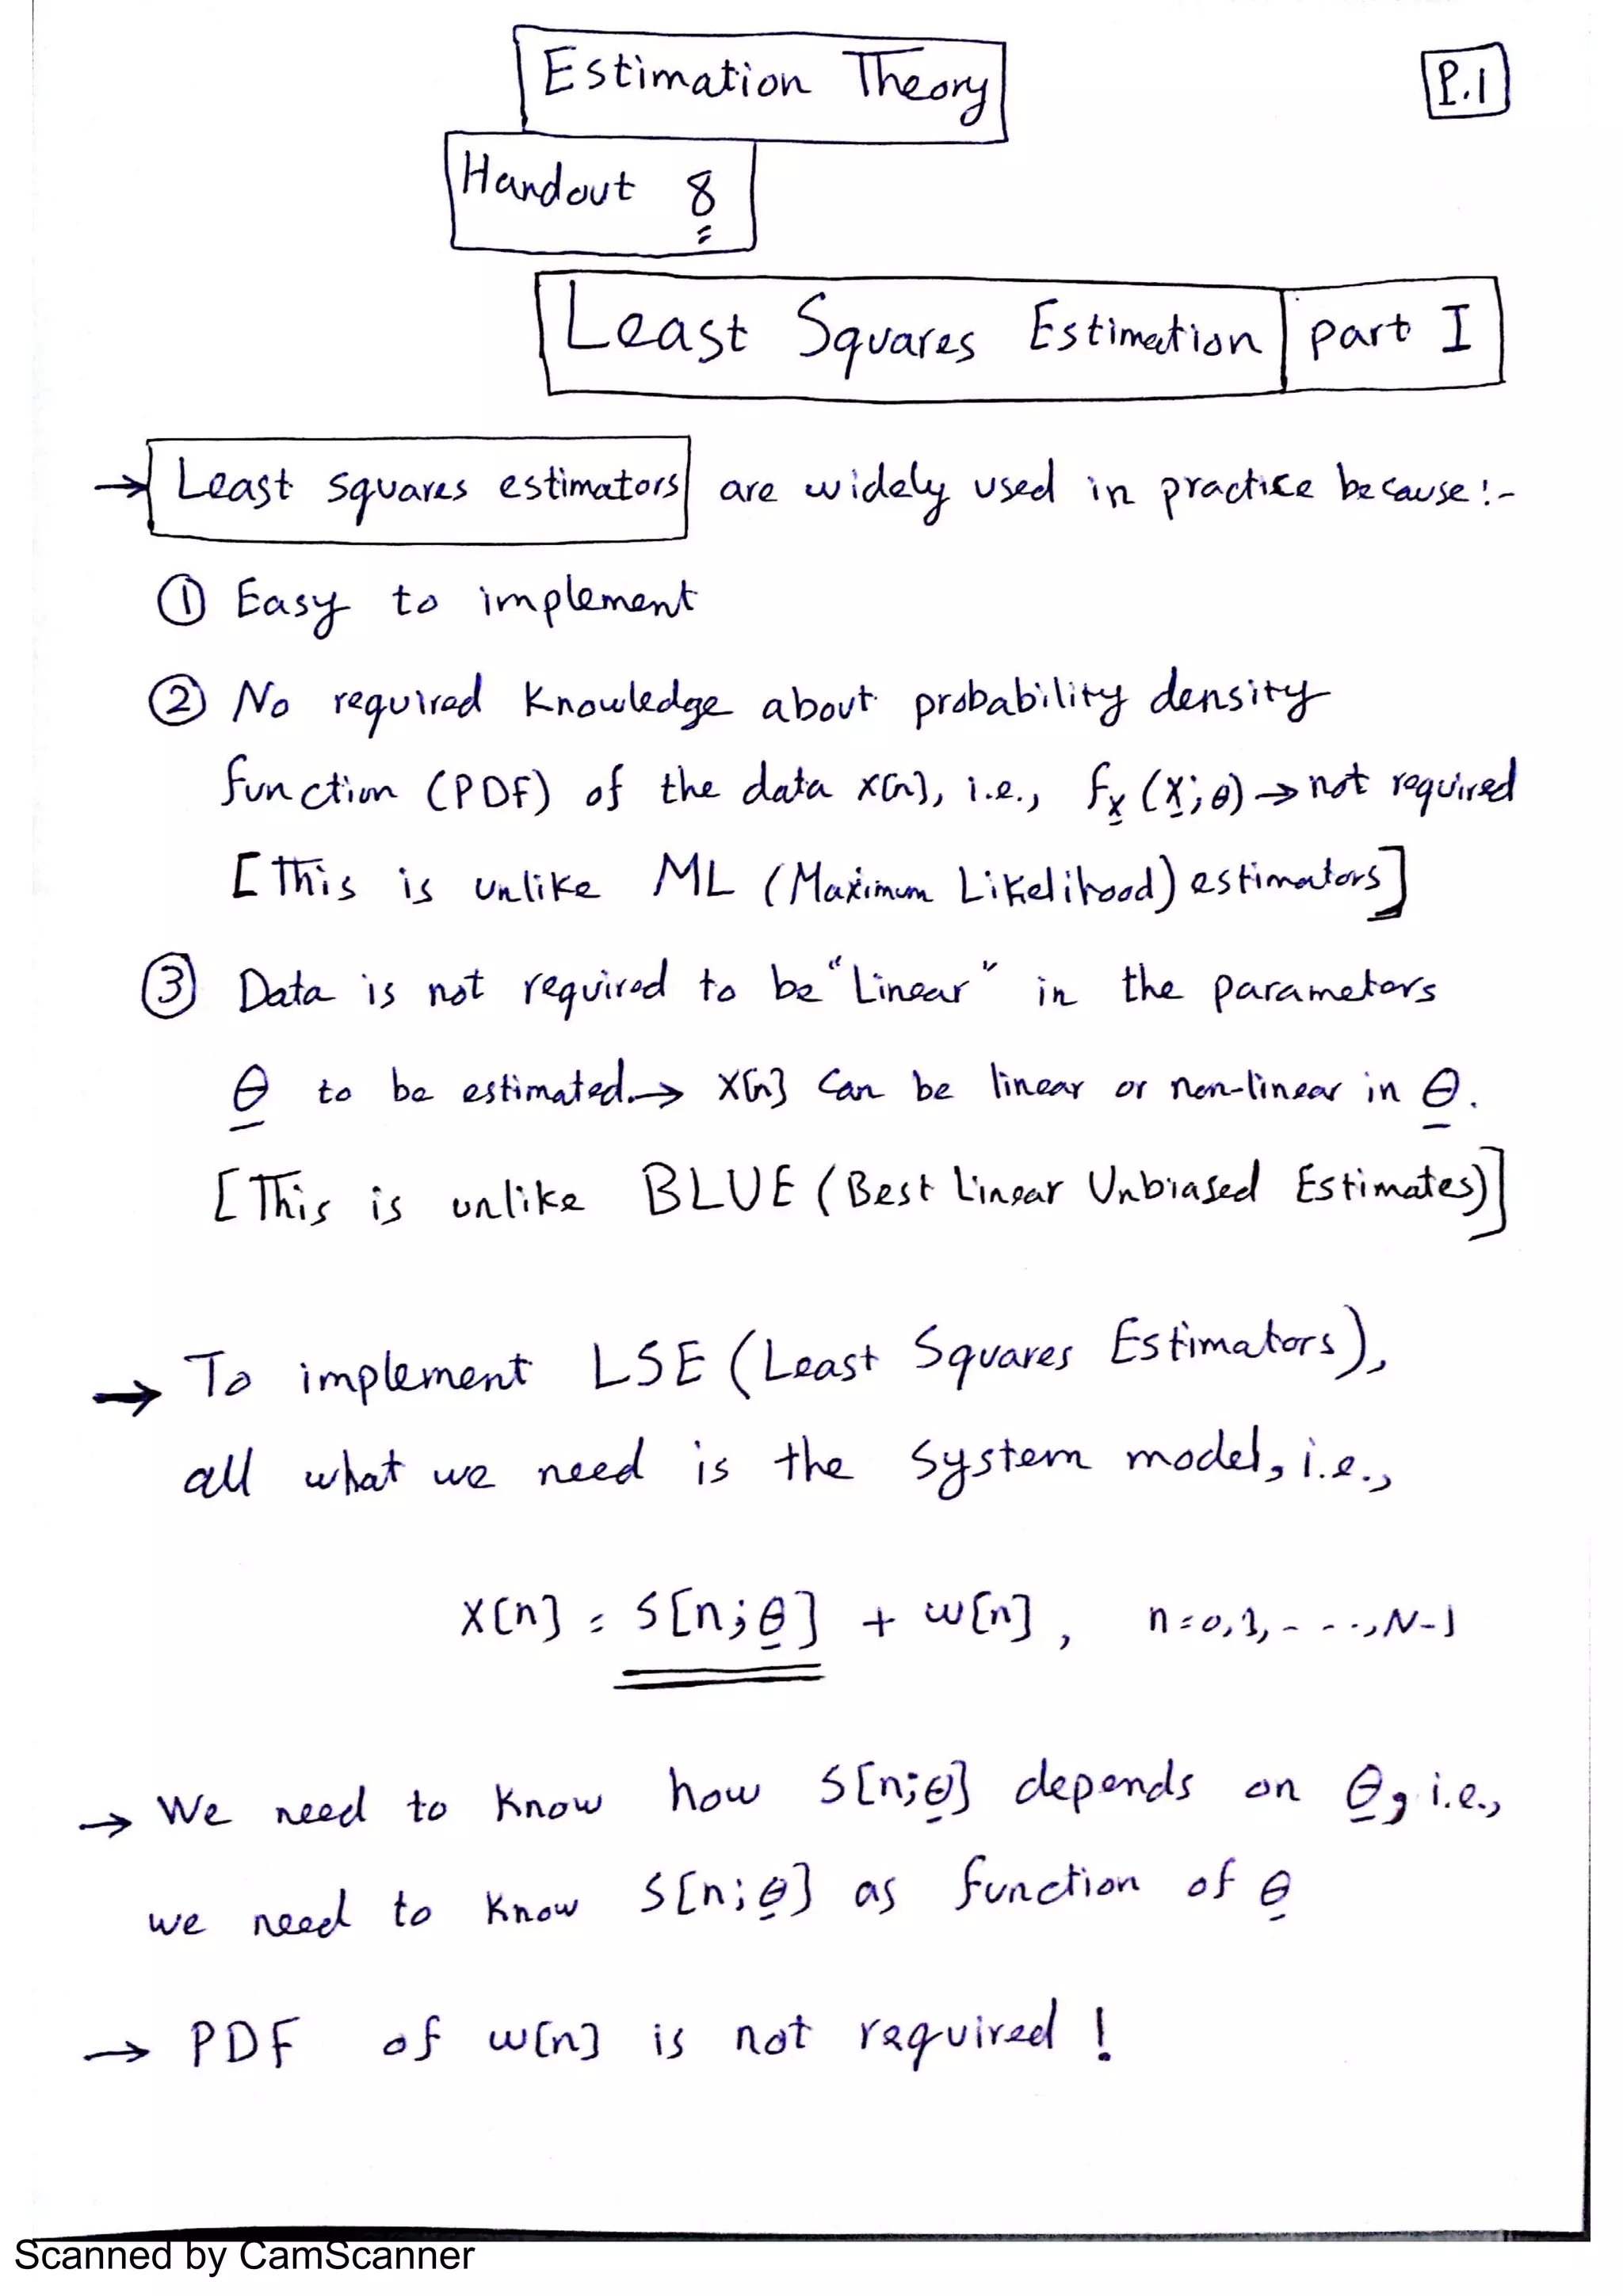 Estimation Theory
P.1
Handout 8
Least Squares Estimation part I
→ Least squares estimators are widely used in practice because:-
① Easy to implement
② No required knowledge about probability density
function (PDF) of the data x[n], i.e., fx (x; θ) → not required
[This is unlike ML (Maximum Likelihood) estimators]
③ Data is not required to be "Linear" in the parameters
θ to be estimated. → x[n] can be linear or non-linear in θ.
[This is unlike BLUE (Best Linear Unbiased Estimates)]
→ To implement LSE (Least Squares Estimators),
all what we need is the system model, i.e.,
x[n] = s[n; θ] + w[n], n = 0, 1, - - .., N-1
→ We need to know how s[n; θ] depends on θ, i.e.,
we need to know s[n; θ] as function of θ
→ PDF of w[n] is not required !
Scanned by CamScanner